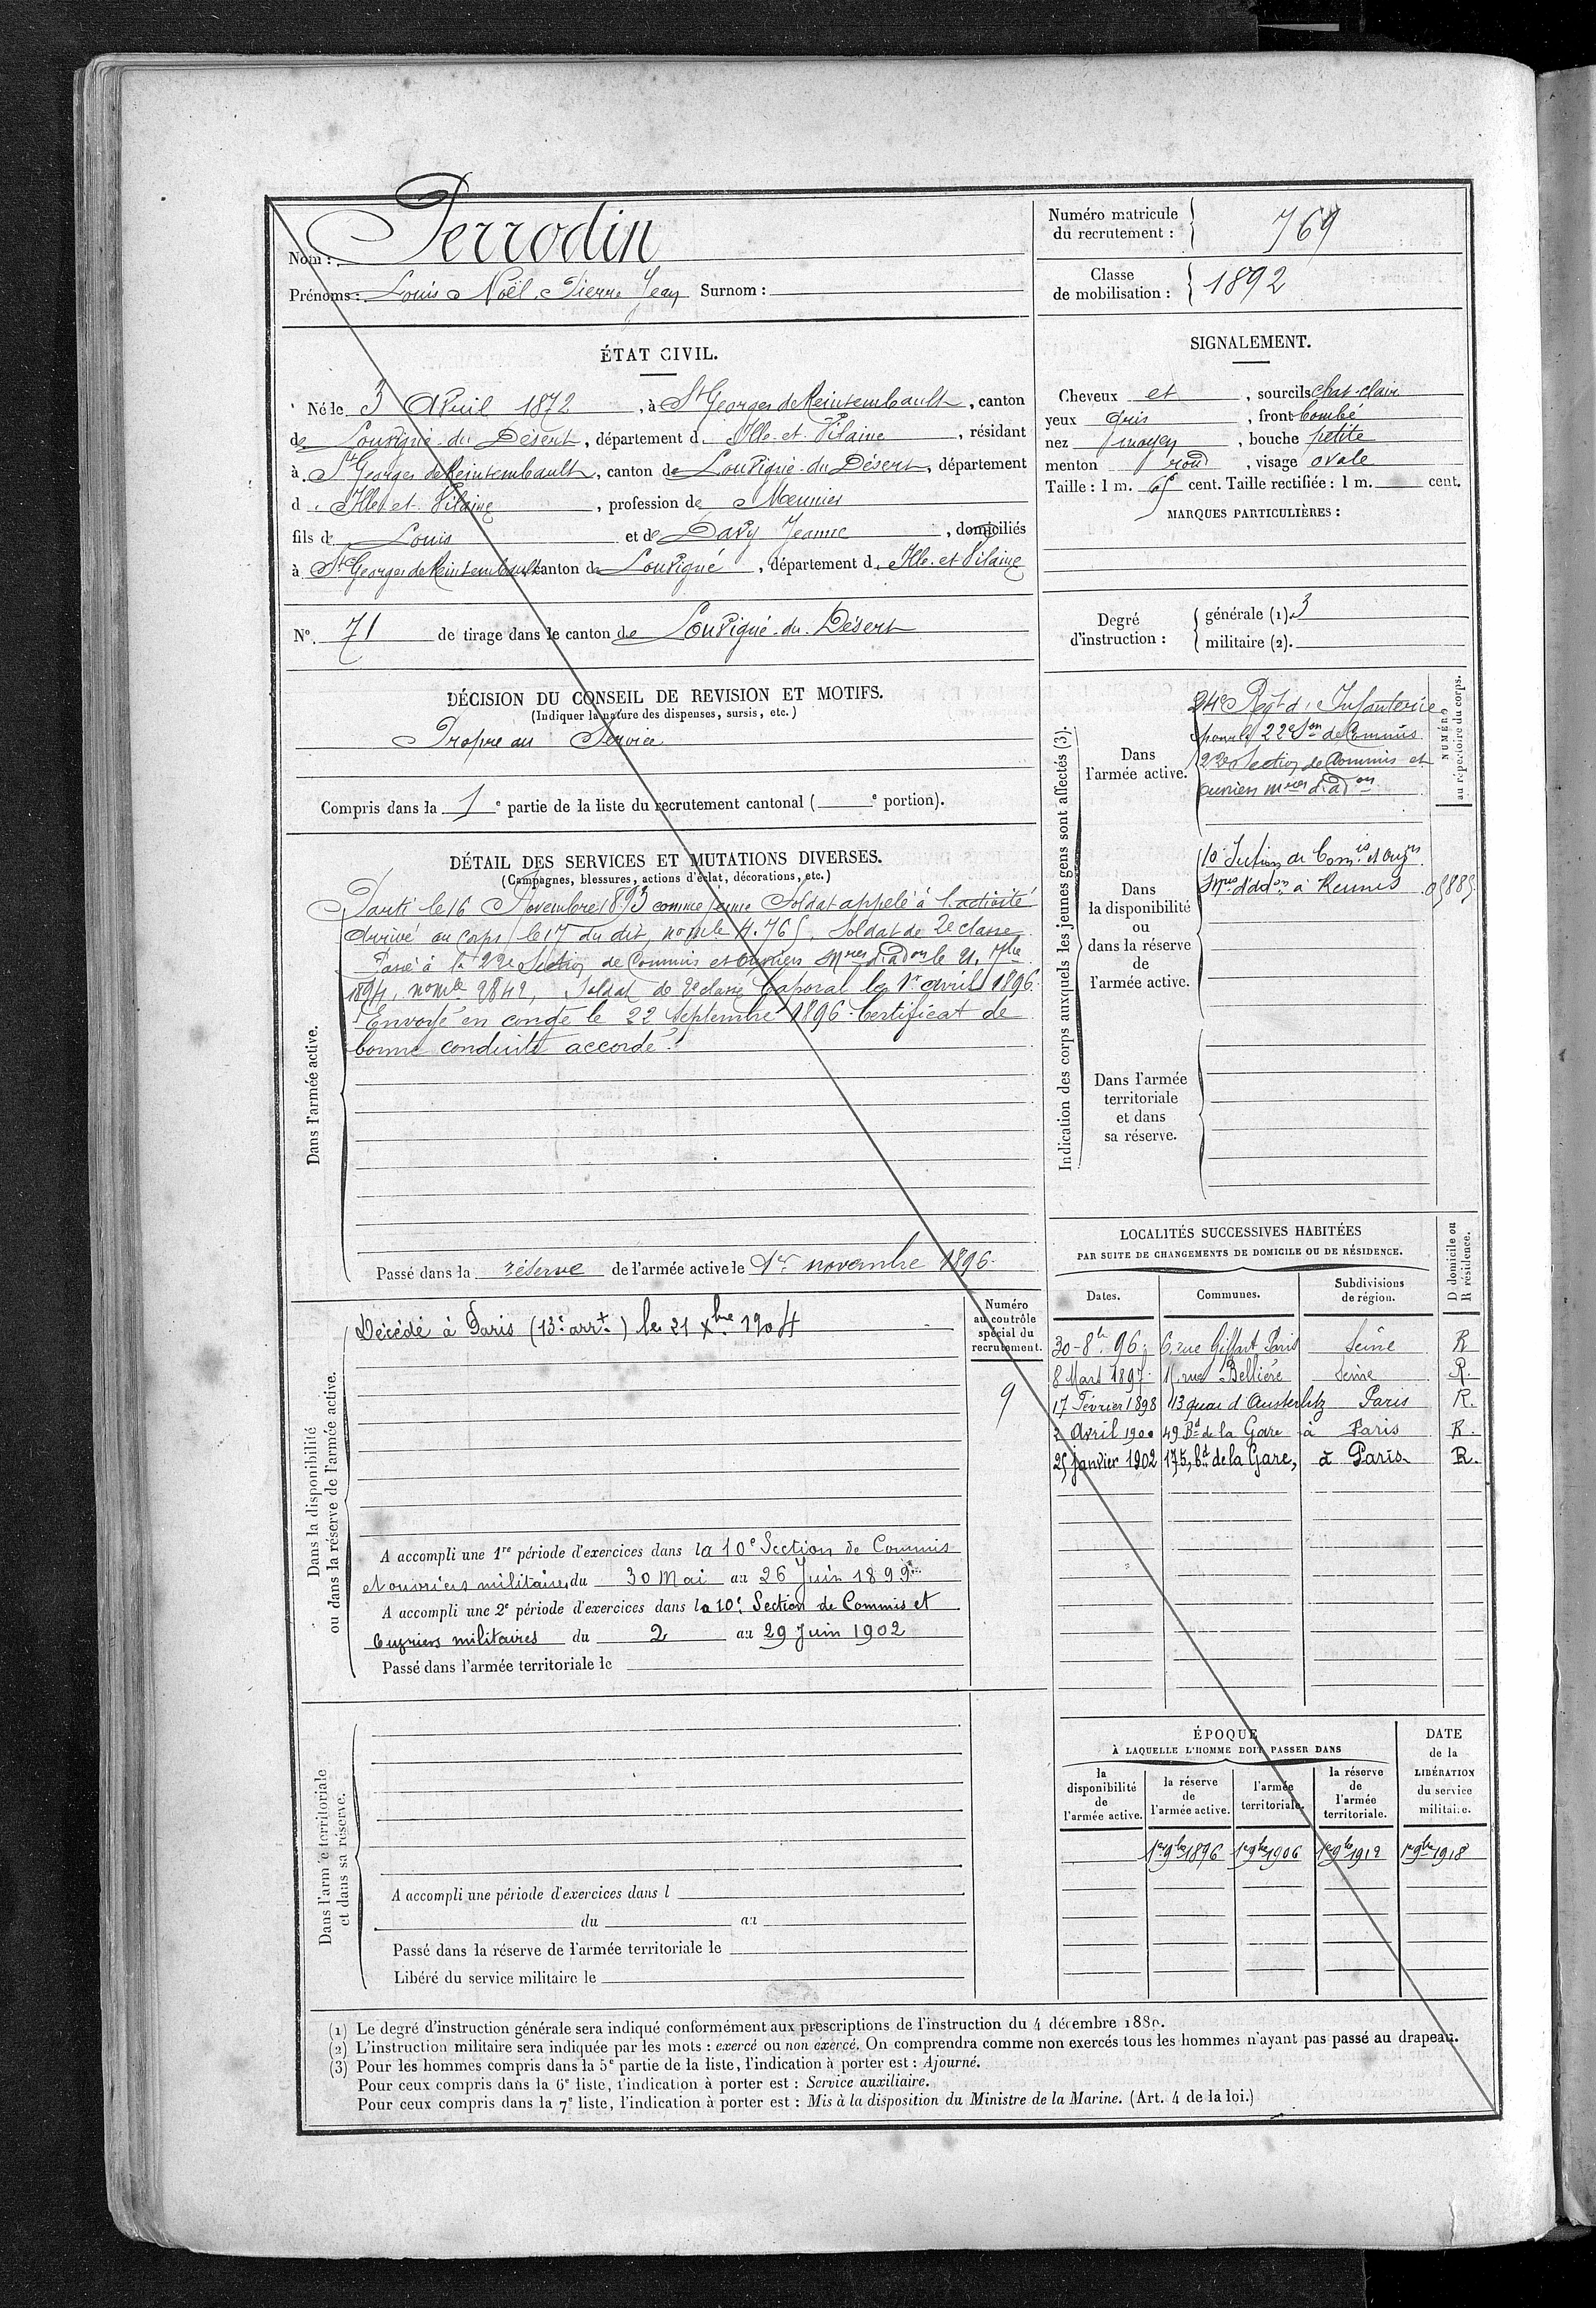 Nom : Perrodin
Prénoms : Louis Noël Pierre Jean Surnom :
Numéro matricule du recrutement : 769
Classe de mobilisation : 1892
ÉTAT CIVIL.
Né le 3 Avril 1872, à St Georges de Reintembault, canton
de Louvigné-du-Désert, département d Ille-et-Vilaine, résidant
à St Georges de Reintembault, canton de Louvigné-du-Désert, département
d Ille-et-Vilaine, profession de Meunier
fils de Louis et de Davy Jeanne, domiciliés
à St Georges de Reintembault canton de Louvigné, département d Ille-et-Vilaine
N° 71 de tirage dans le canton de Louvigné-du-Désert
DÉCISION DU CONSEIL DE REVISION ET MOTIFS.
(Indiquer la nature des dispenses, sursis, etc.)
Propre au Service
Compris dans la 1e partie de la liste du recrutement cantonal ( e portion).
SIGNALEMENT.
Cheveux et, sourcils chat-clair
yeux gris, front bombé
nez moyen, bouche petite
menton rond, visage ovale
Taille : 1 m. 65 cent. Taille rectifiée : 1 m. cent.
MARQUES PARTICULIÈRES :
Degré d'instruction :
générale (1). 3
militaire (2).
DÉTAIL DES SERVICES ET MUTATIONS DIVERSES.
(Campagnes, blessures, actions d'éclat, décorations, etc.)
Dans l'armée active.
Parti le 16 Novembre 1893 comme jeune Soldat appelé à l'activité
Arrivé au corps le 17 du dit, no mle 4.765, Soldat de 2e classe
Passé à la 22e Section de Commis et Ouvriers Mres d'adon le 21 7bre
1894, no mle 2842, Soldat de 2e classe Caporal le 1r avril 1896.
Envoyé en congé le 22 Septembre 1896. Certificat de
bonne conduite accordé.
Passé dans la réserve de l'armée active le 1er novembre 1896.
Indication des corps auxquels les jeunes gens sont affectés (3).
NUMÉRO au répertoire du corps.
Dans l'armée active.
24e Régt d'Infanterie
pour la 22e Son de Commis
22e Section de Commis et
ouvriers mres d'adon
Dans la disponibilité ou dans la réserve de l'armée active.
10e Section de Comis et Ouvrs
Mres d'adon à Rennes
Dans l'armée territoriale et dans sa réserve.
LOCALITÉS SUCCESSIVES HABITÉES
PAR SUITE DE CHANGEMENTS DE DOMICILE OU DE RÉSIDENCE.
Dates. Communes. Subdivisions de région. D domicile ou R résidence.
30-8bre 96. 6, rue Giffart Paris Seine R
8 Mars 1897. rue Bellièvre Seine R.
17 Février 1898 13 quai d'Austerlitz Paris R.
2 Avril 1900 49 Bd de la Gare à Paris R.
25 janvier 1902 175, bd de la Gare, à Paris R.
Dans la disponibilité
ou dans la réserve de l'armée active.
Numéro au contrôle spécial du recrutement.
9
Décédé à Paris (13e arrt.) le 21 Xbre 1904
A accompli une 1re période d'exercices dans la 10e Section de Commis
et ouvriers militaires du 30 Mai au 26 Juin 1899
A accompli une 2e période d'exercices dans la 10e Section de Commis et
Ouvriers militaires du 2 au 29 Juin 1902
Passé dans l'armée territoriale le
Dans l'armée territoriale
et dans sa réserve.
A accompli une période d'exercices dans l
du au
Passé dans la réserve de l'armée territoriale le
Libéré du service militaire le
ÉPOQUE
À LAQUELLE L'HOMME DOIT PASSER DANS
la disponibilité de l'armée active. la réserve de l'armée active. l'armée territoriale. la réserve de l'armée territoriale.
DATE de la LIBÉRATION du service militaire.
1er 9bre 1896 1er 9bre 1906 1er 9bre 1912 1er 9bre 1918
(1) Le degré d'instruction générale sera indiqué conformément aux prescriptions de l'instruction du 4 décembre 1889.
(2) L'instruction militaire sera indiquée par les mots : exercé ou non exercé. On comprendra comme non exercés tous les hommes n'ayant pas passé au drapeau.
(3) Pour les hommes compris dans la 5e partie de la liste, l'indication à porter est : Ajourné.
Pour ceux compris dans la 6e liste, l'indication à porter est : Service auxiliaire.
Pour ceux compris dans la 7e liste, l'indication à porter est : Mis à la disposition du Ministre de la Marine. (Art. 4 de la loi.)